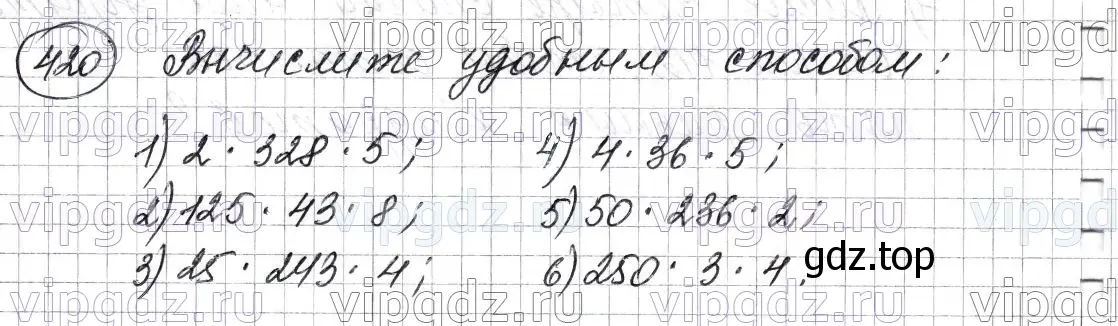 420 Вычислите удобным способом:
1) 2 · 328 · 5;
2) 125 · 43 · 8;
3) 25 · 243 · 4;
4) 4 · 36 · 5;
5) 50 · 236 · 2;
6) 250 · 3 · 4.
gdz.top
vipgdz.ru